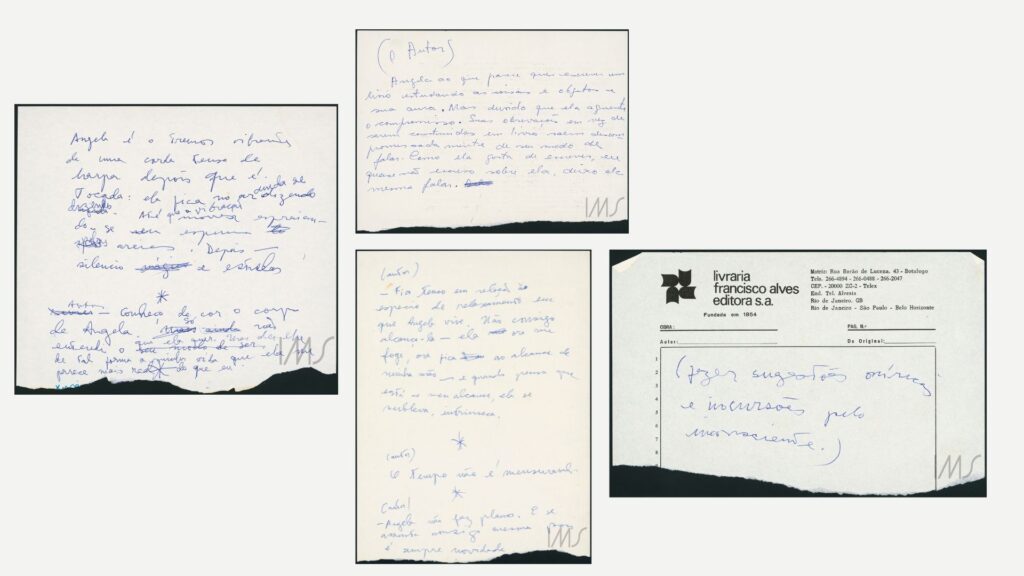 Angela é o tremor vibrante
de uma corda tensa de
harpa depois que é
tocada: ela fica no ar
dizendo
Até que a vibração
areias. Depois —
silencio e estrelas
*
Autor
— Conheço de cor o corpo
de Angela. só não
entendo o que ela quer.
de tal forma a minha vida que ela me
parece mais real do que eu.
IMS
(o Autor)
Angela ao que parece quer escrever um
livro estudando as coisas e objetos e
sua aura. Mas duvido que ela aguente
o compromisso. Suas observações em vez de
serem construidas em livro saem descom-
promissadamente de seu modo de
falar. Como ela gosta de escrever, eu
quase não escrevo sobre ela, deixo ela
mesma falar.
IMS
(autor)
— Fico tenso em relação à
espécie de relaxamento em
que Angela vive. Não consigo
alcança-la — ela
foge, ora fica ao alcance de
minha mão — e quando penso que
está a meu alcance, ela se
*
(autor)
O tempo não é mensuravel.
*
(autor)
— Angela não faz plano. E se
é sempre novidade
IMS
livraria
francisco alves
editora s.a.
Fundada em 1854
Matriz: Rua Barão de Lucena, 43 - Botafogo
Tels. 266-4894 - 266-0488 - 266-2047
CEP. - 20000 ZC-2 - Telex
End. Tel. Alvesia
Rio de Janeiro, GB
Rio de Janeiro - São Paulo - Belo Horizonte
OBRA:
PÁG. N.º
Autor:
Do Original:
1
2
3
4
5
6
7
8
(fazer sugestões oníricas
e incursões pelo
inconsciente.)
IMS